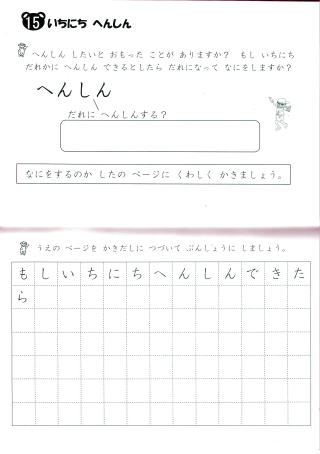 15 いちにち へんしん
へんしん したいと おもった ことが ありますか？ もし いちにち
だれかに へんしん できるとしたら だれになって なにをしますか？
へんしん
だれに へんしんする？
なにをするのか したの ページに くわしく かきましょう。
うえの ページを かきだしに つづいて ぶんしょうに しましょう。
もしいちにちへんしんできた
ら